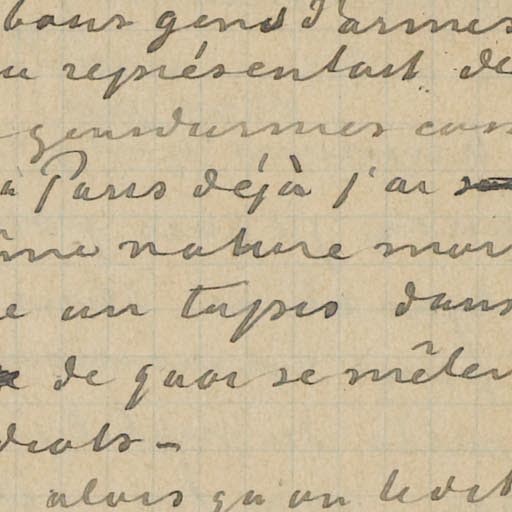 bons gens d'armes
u représentait de
gensdarmes com
à Paris déjà j'ai
ême nature mor
e un tapis dans
de quoi se mêlen
droits -
alors qu'on